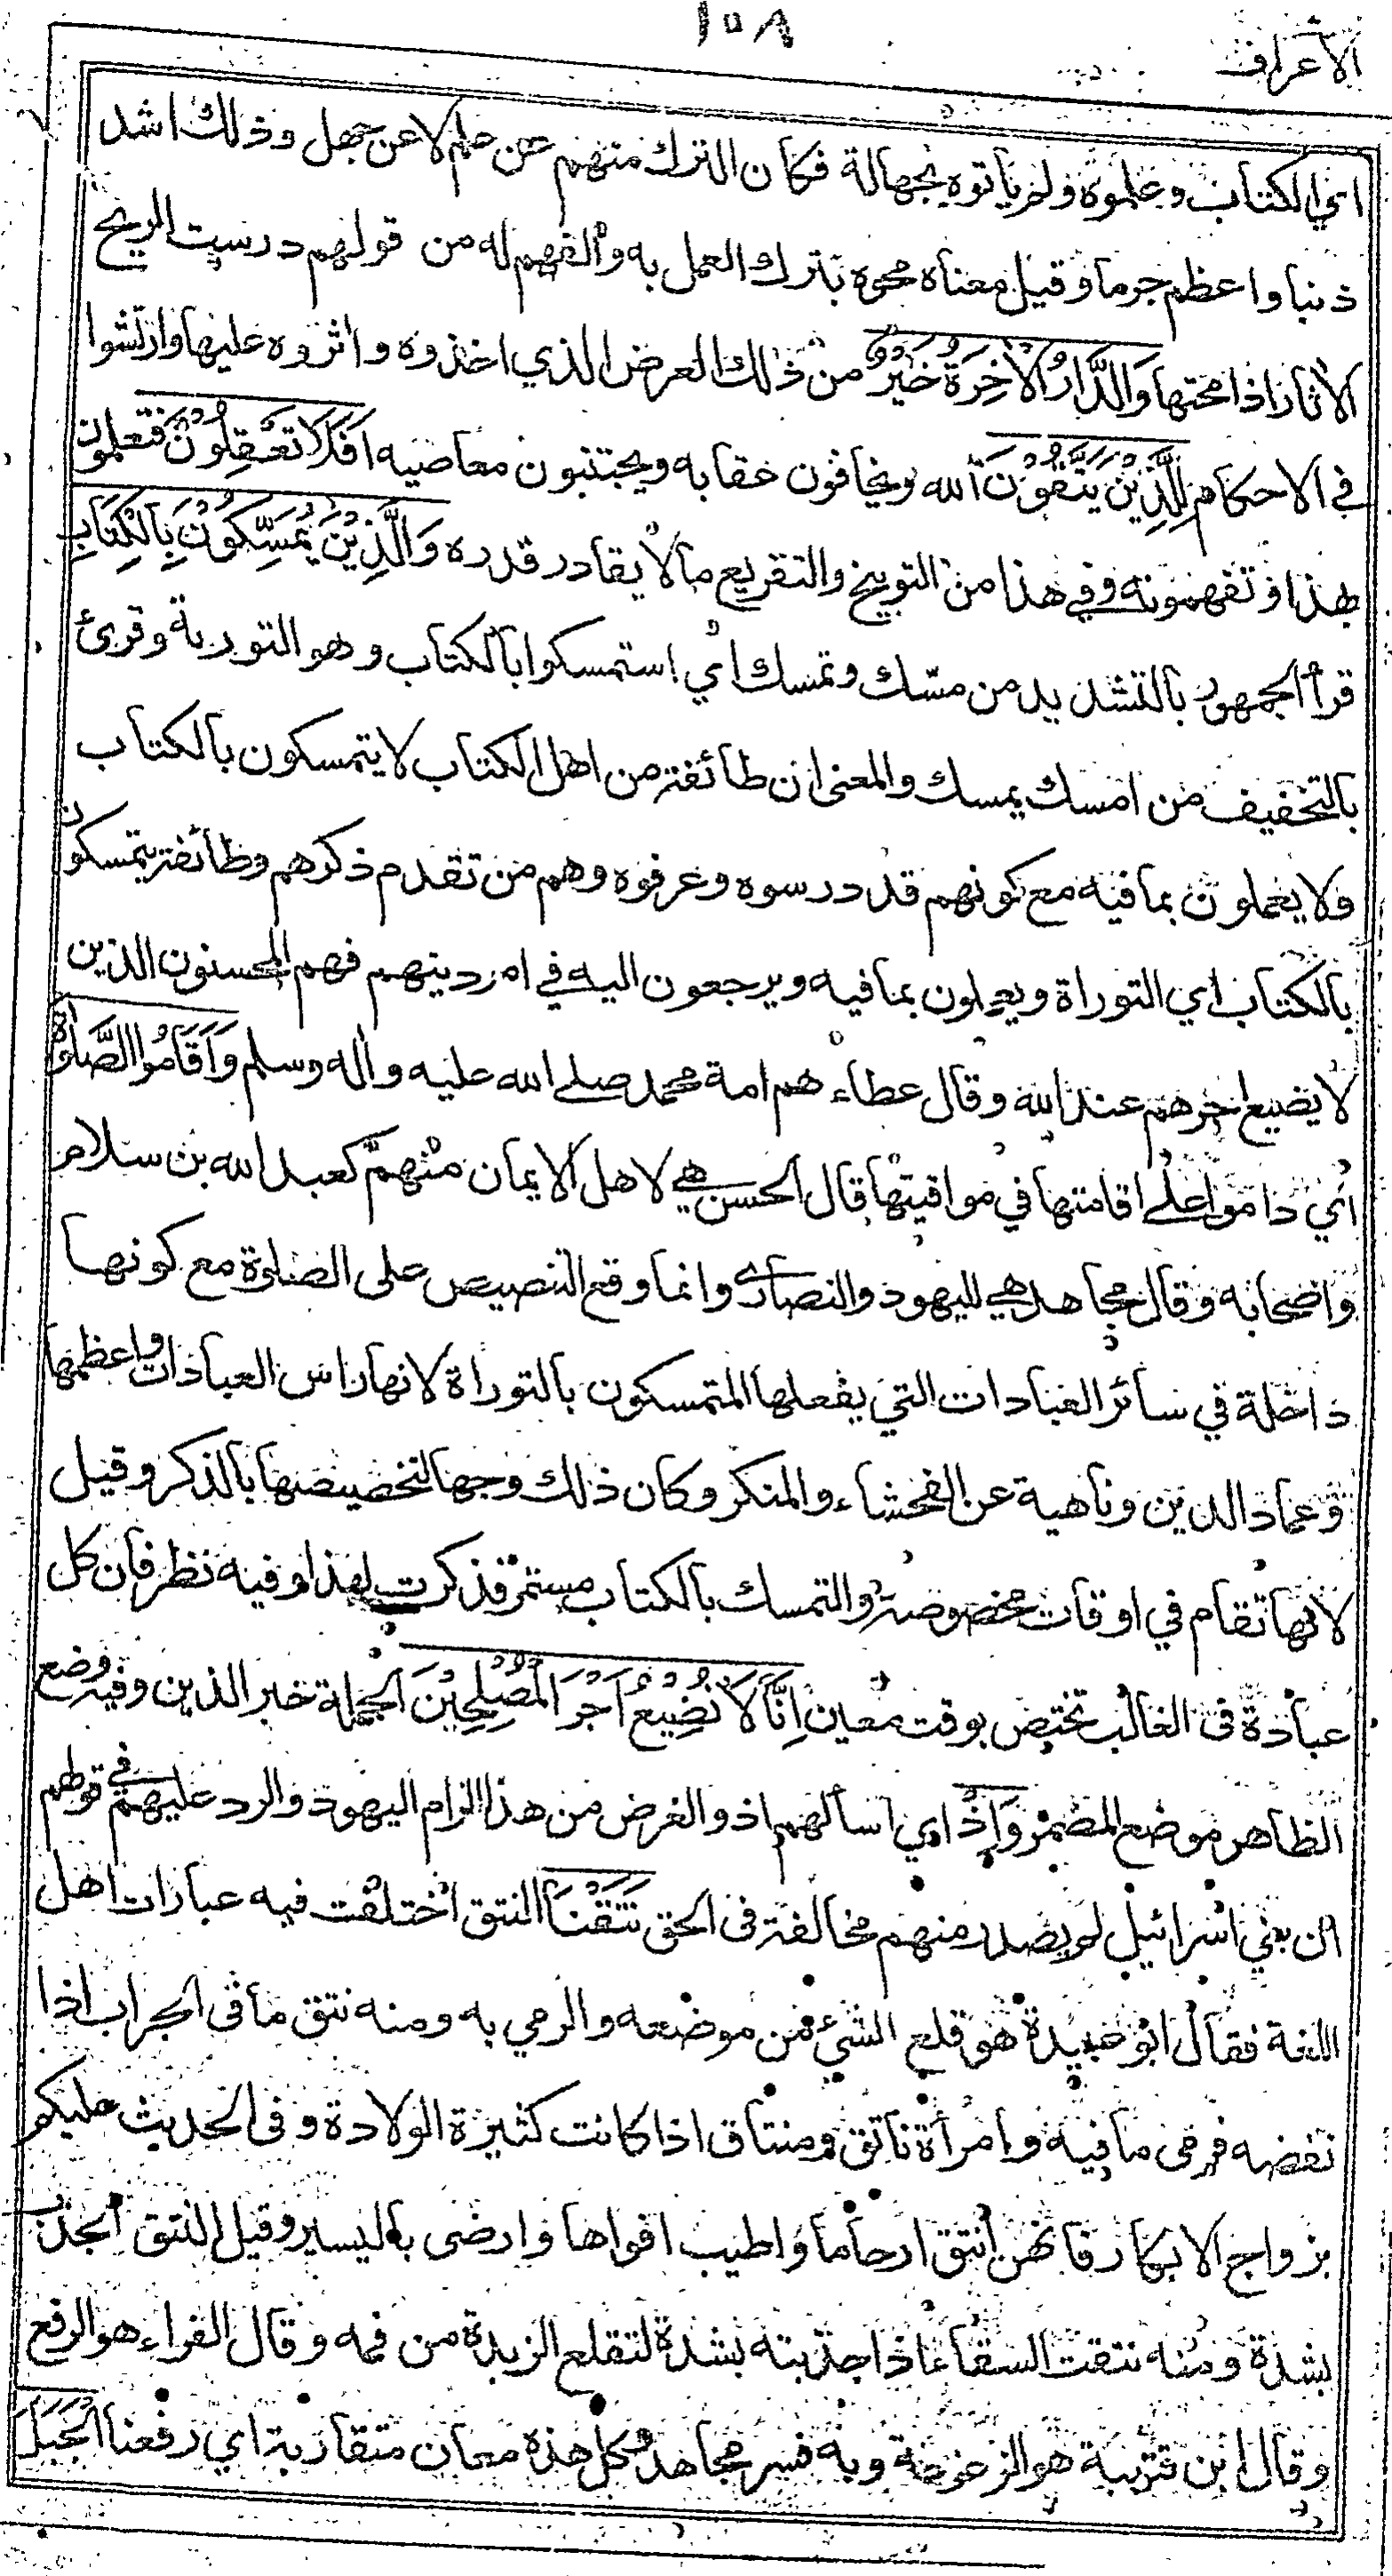 ١٥٨
الأعراف
اي الكتاب وعلموه ولم يأتوه بجهالة فكان الترك منهم عن علم لا عن جهل وذلك اشد
ذنبا واعظم جرما وقيل معناه محوه بترك العمل به والفهم له من قولهم درست الريح
الآثار اذا محتها وَالدَّارُ الْآخِرَةُ خَيْرٌ من ذلك العرض الذي اخذوه واثروه عليها وارتشوا
في الاحكام لِلَّذِيْنَ يَتَّقُوْنَ الله ويخافون عقابه ويجتنبون معاصيه اَفَلَا تَعْقِلُوْنَ فتعلمون
بهذا وتفهمونه وفي هذا من التوبيخ والتقريع ما لا يقادر قدره وَالَّذِيْنَ يُمَسِّكُوْنَ بِالْكِتَابِ
قرأ الجمهور بالتشديد من مسّك وتمسك اي استمسكوا بالكتاب وهو التورىة وقرئ
بالتخفيف من امسك يمسك والمعنى ان طائفة من اهل الكتاب لا يتمسكون بالكتاب
فلا يعملون بما فيه مع كونهم قد درسوه وعرفوه وهم من تقدم ذكرهم وطائفة يتمسكون
بالكتاب اي التوراة ويعملون بما فيه ويرجعون اليه في امر دينهم فهم المحسنون الذين
لا يضيع اجرهم عند الله وقال عطاء هم امة محمد صلى الله عليه واله وسلم وَاَقَامُوا الصَّلٰوةَ
اي داموا على اقامتها في مواقيتها قال الحسن هي لاهل الايمان منهم كعبد الله بن سلام
واصحابه وقال مجاهد هي لليهود والنصارى وانما وقع التنصيص على الصلوة مع كونها
داخلة في سائر العبادات التي يفعلها المتمسكون بالتوراة لانها راس العبادات واعظمها
وعماد الدين وناهية عن الفحشاء والمنكر وكان ذلك وجها لتخصيصها بالذكر وقيل
لانها تقام في اوقات مخصوصة والتمسك بالكتاب مستمر فذكرت لهذا وفيه نظر فان كل
عبادة في الغالب تختص بوقت معين اِنَّا لَا نُضِيْعُ اَجْرَ الْمُصْلِحِيْنَ الجملة خبر الذين وفيه وضع
الظاهر موضع المضمر وَاِذْ اي اسألهم اذ والغرض من هذا الزام اليهود والرد عليهم في قولهم
ان بني اسرائيل لم يصدر منهم مخالفة في الحق نَتَقْنَا النتق اختلفت فيه عبارات اهل
اللغة فقال ابو عبيدة هو قلع الشيء من موضعه والرمي به ومنه نتق ما في الجراب اذا
نفضه فرمى ما فيه وامرأة ناتق ومنتاق اذا كانت كثيرة الولادة وفي الحديث عليكم
بزواج الابكار فانهن انتق ارحاما واطيب افواها وارضى باليسير وقيل النتق الجذب
بشدة ومنه نتقت السقاء اذا جذبته بشدة لتقلع الزبدة من فمه وقال الفراء هو الرفع
وقال ابن قتيبة هو الزعزعة وبه فسر مجاهد وكل هذه معان متقاربة اي رفعنا الْجَبَلَ